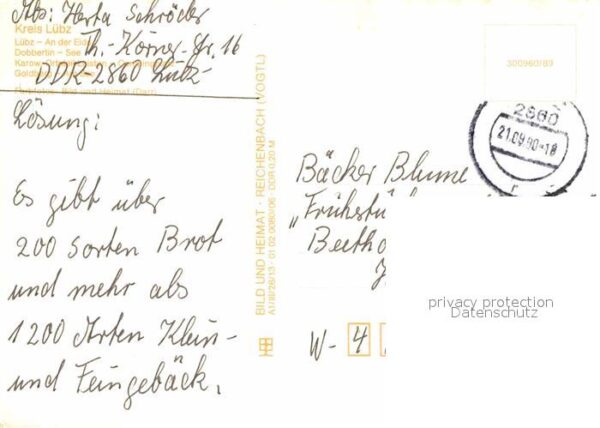 Abs: Herta Schröder
Th.-Körner-Str. 16
DDR-2860 Lübz
Kreis Lübz
Lübz – An der Elde
Dobbertin – See
Karow
Goldberg
Bild und Heimat (Darr)
Lösung:
Es gibt über
200 Sorten Brot
und mehr als
1200 Arten Klein-
und Feingebäck.
BILD UND HEIMAT · REICHENBACH (VOGTL)
A1/III/26/13 · 01 02 0080/06 · DDR 0,20 M
300960/89
2860
21.09.90-18
Bäcker Blume
„Frühstü
Beetho
W-4
privacy protection
Datenschutz